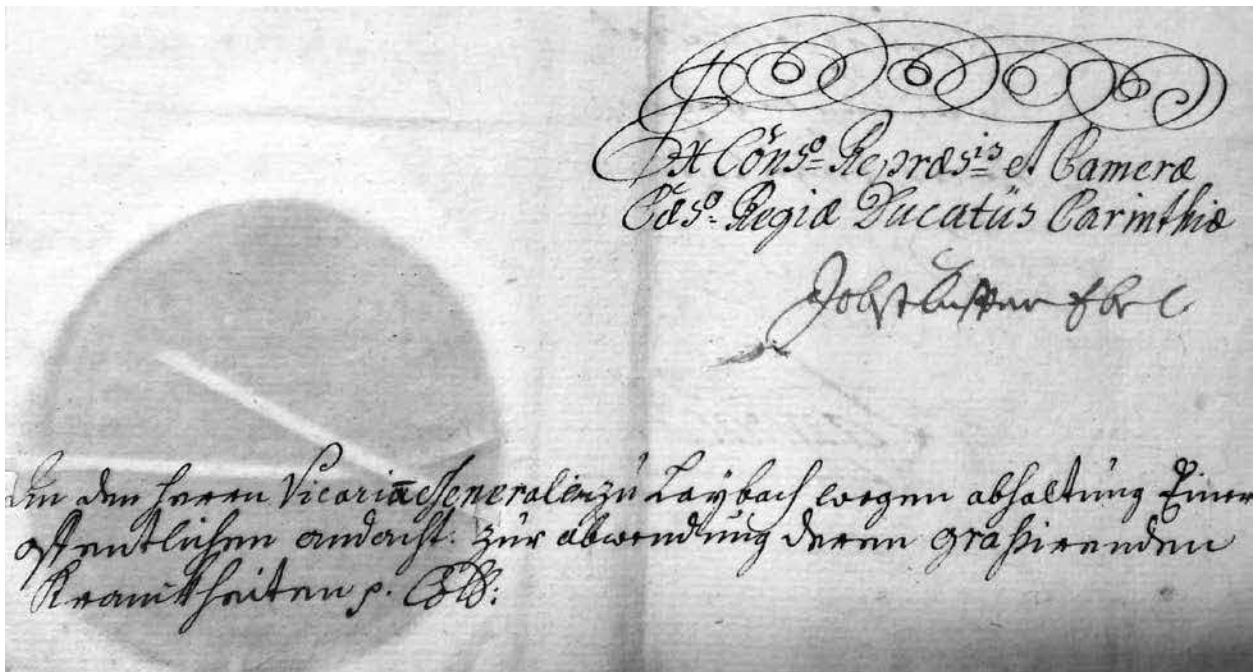 Ex Cons.o Repræs.is et Cameræ
Cæs.o Regiæ Ducatüs Carinthiæ
An den Herrn Vicariū Generalem zu Laybach wegen abhaltung Einer
offentlichen andacht. zur abwendung deren grassirenden
Krankheiten p.